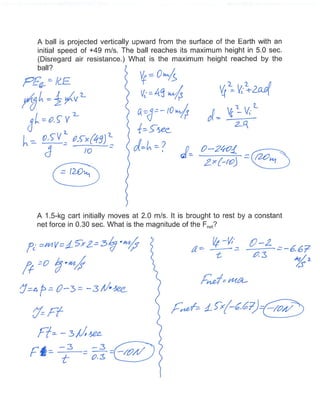 A ball is projected vertically upward from the surface of the Earth with an
initial speed of +49 m/s. The ball reaches its maximum height in 5.0 sec.
(Disregard air resistance.) What is the maximum height reached by the
ball?
PEG = KE
mgh = 1/2 mv²
gh = 0.5 v²
h = 0.5 v² / g = 0.5×(49)² / 10
= 120m
Vf = 0m/s
Vi = 49 m/s
a=g=-10 m/s
t=5sec
d=h=?
Vf² = Vi² + 2ad
d = Vf² - Vi² / 2a
d = 0-2401 / 2×(-10) = 120m
A 1.5-kg cart initially moves at 2.0 m/s. It is brought to rest by a constant
net force in 0.30 sec. What is the magnitude of the Fnet?
Pi = mv = 1.5×2 = 3kg•m/s
Pf = 0 kg•m/s
J = Δp = 0-3 = -3 N•sec
J = Ft
Ft = -3 N•sec
F = -3 / t = -3 / 0.3 = -10N
a = Vf - Vi / t = 0-2 / 0.3 = -6.67 m/s²
Fnet = ma
Fnet = 1.5×(-6.67) = -10N